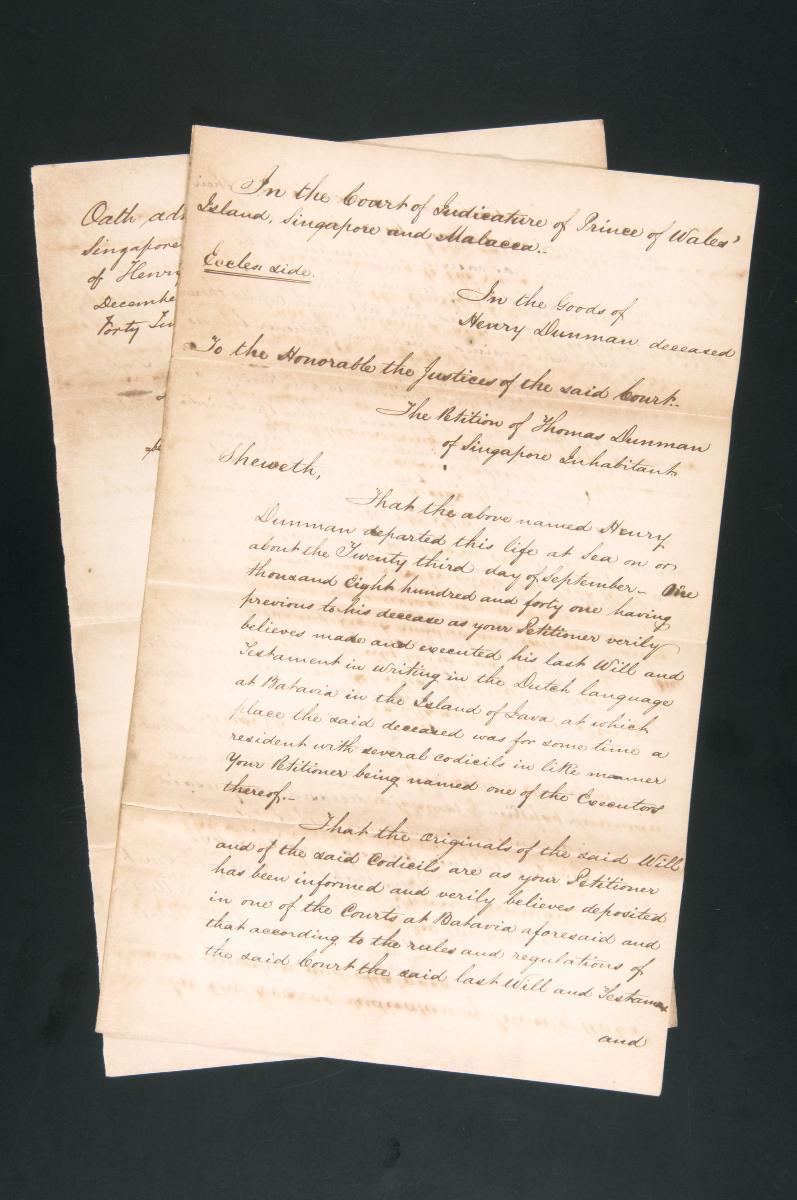 In the Court of Judicature of Prince of Wales'
Island, Singapore and Malacca.-
Eccles: side.
In the Goods of
Henry Dunman deceased
To the Honorable the Justices of the said Court..
The Petition of Thomas Dunman
of Singapore Inhabitant
Sheweth,
That the above named Henry
Dunman departed this life at Sea on or
about the Twenty third day of September - One
thousand Eight hundred and forty one having
previous to his decease as your Petitioner verily
believes made and executed his last Will and
Testament in writing in the Dutch language
at Batavia in the Island of Java at which
place the said deceased was for some time a
resident with several codicils in like manner
Your Petitioner being named one of the Executors
thereof.-
That the originals of the said Will
and of the said Codicils are as your Petitioner
has been informed and verily believes deposited
in one of the Courts at Batavia aforesaid and
that according to the rules and regulations of
the said Court the said last Will and Testament
and
Oath adm
Singapore
of Henry
December
Forty